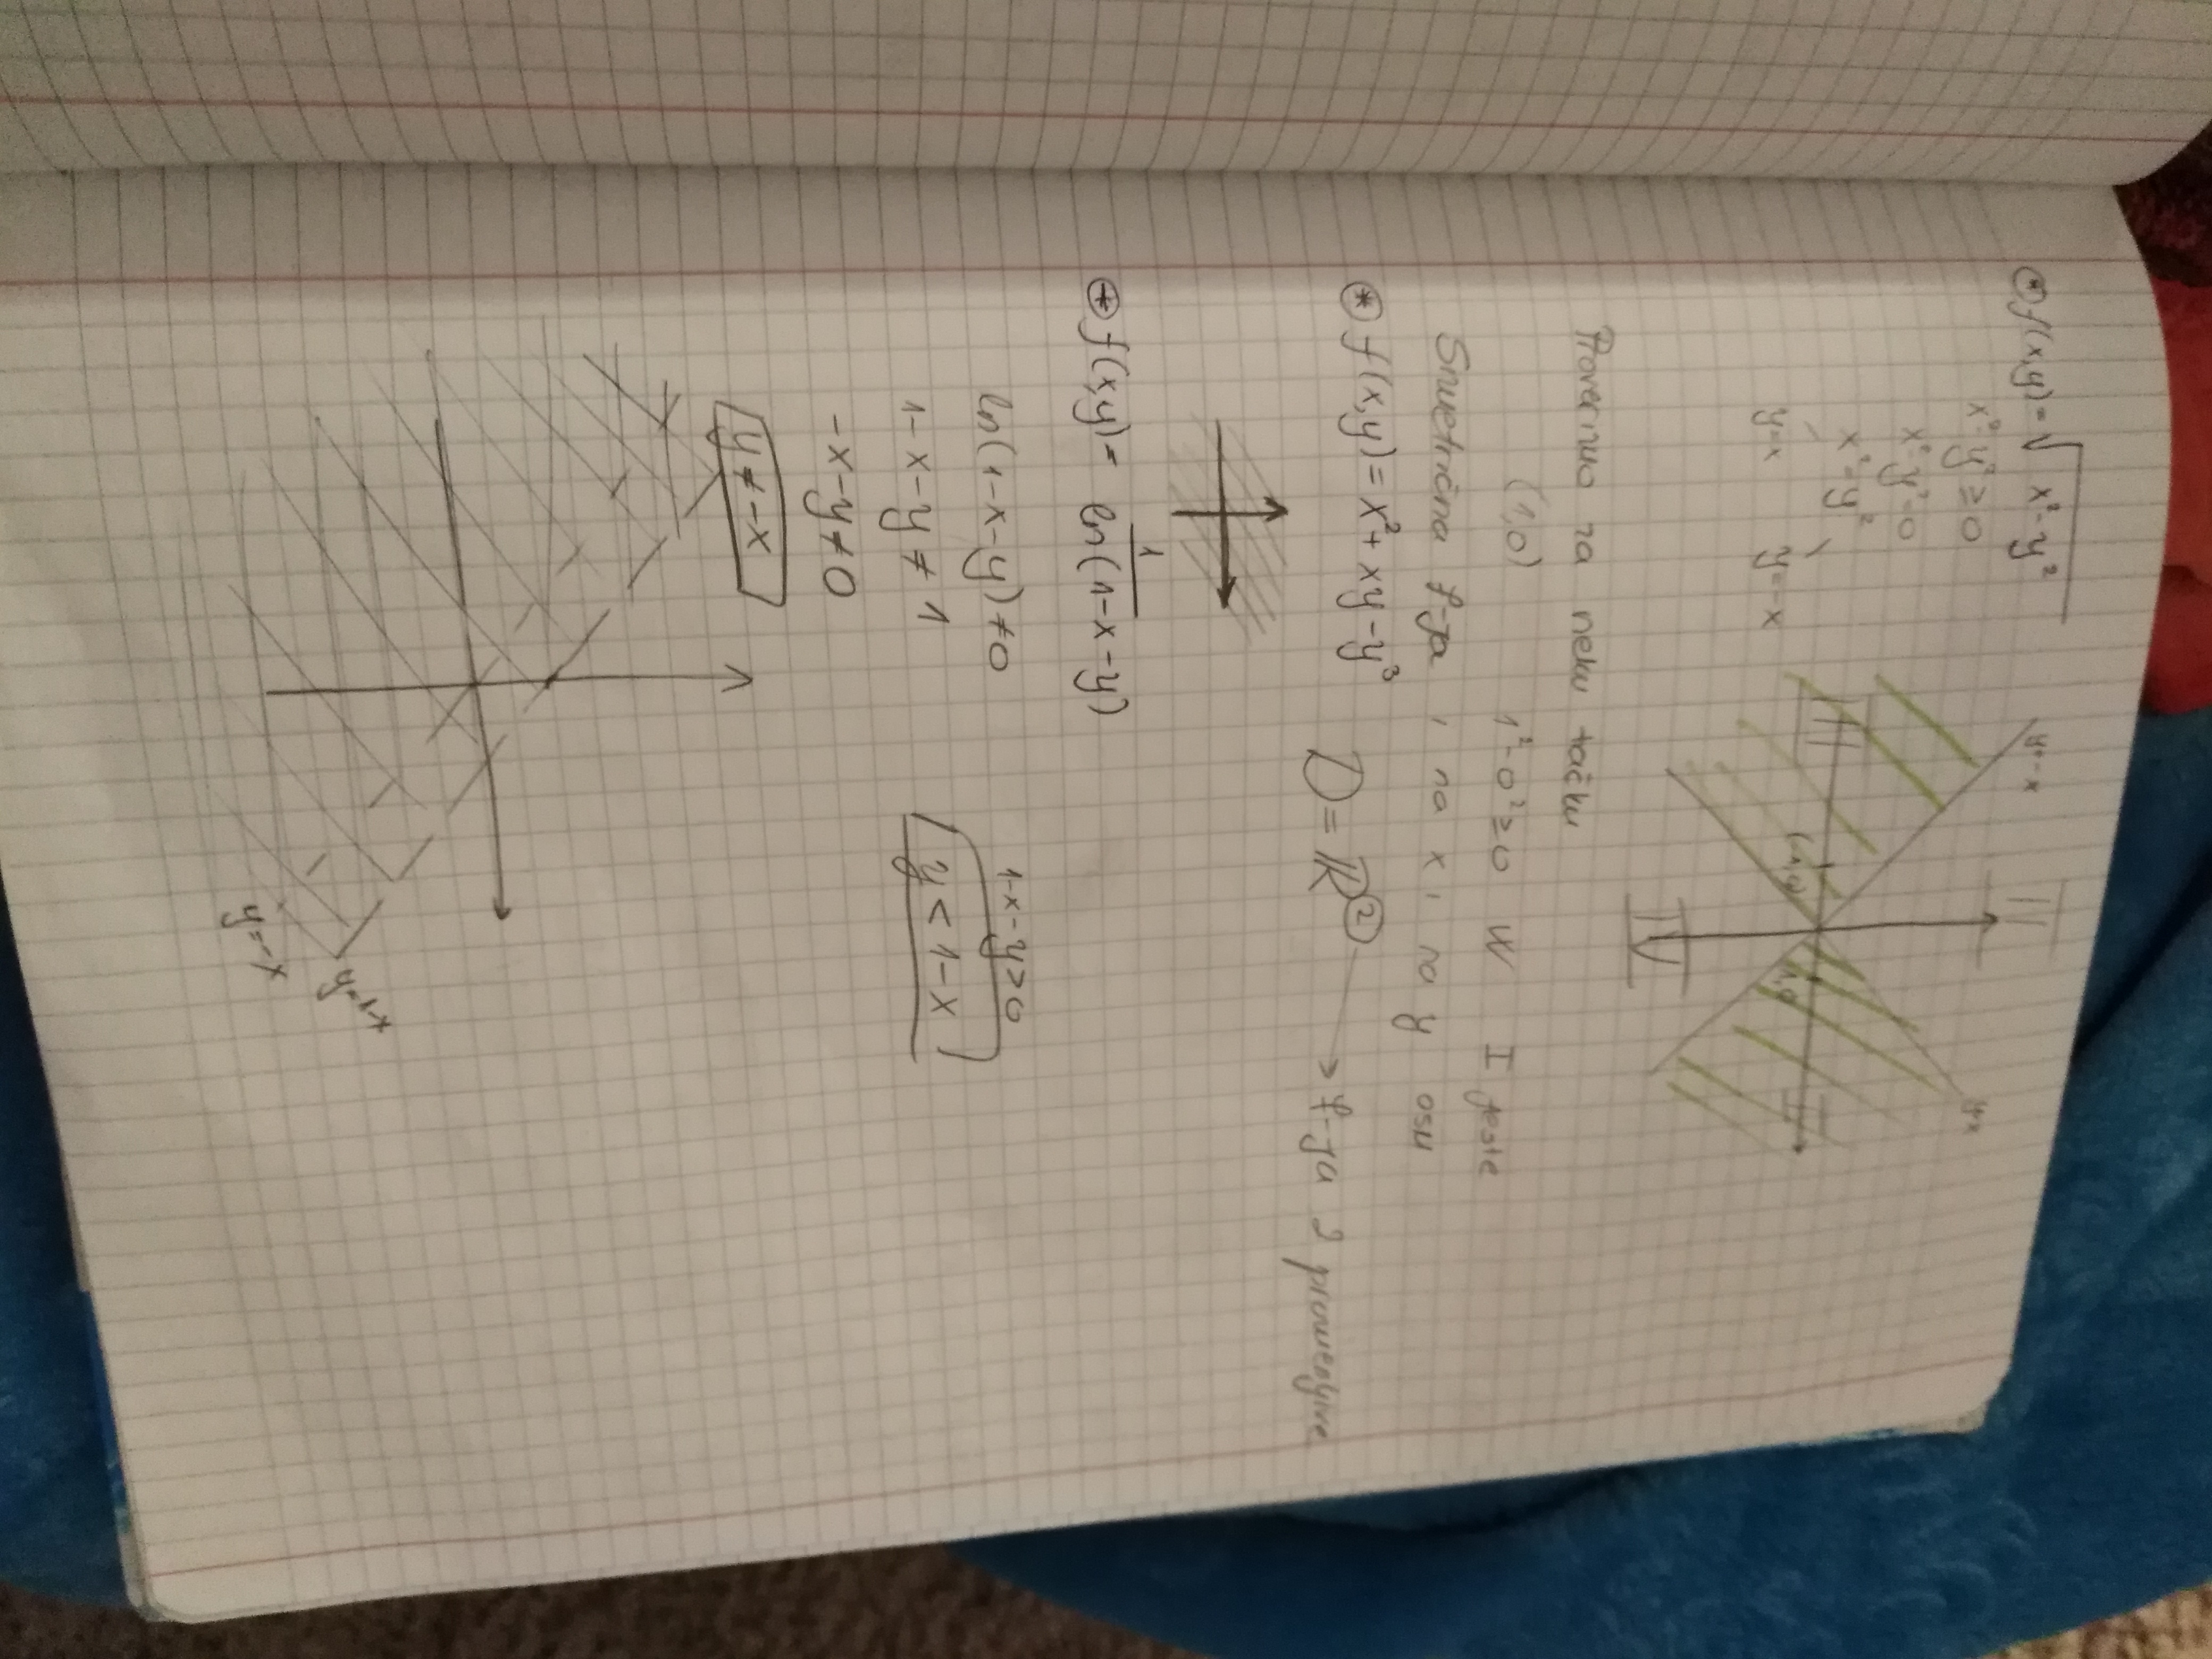 ⊛ f(x,y) = √x²-y²
x²-y² ≥ 0
x²-y²=0
x²=y²
y=x y=-x
y=-x
II
III
(-1,0)
1,0
I
y=x
IV
Proverimo za neku tačku
(1,0) 1²-0²≥0 I jeste
Simetrična f-ja i na x i na y osu
⊛ f(x,y) = x² + xy - y³ D = ℝ² → f-ja 2 promenjive
⊛ f(x,y) = 1/ln(1-x-y)
ln(1-x-y) ≠ 0 1-x-y>0
1-x-y ≠ 1 y < 1-x
-x-y ≠ 0
y ≠ -x
y=1-x
y=-x